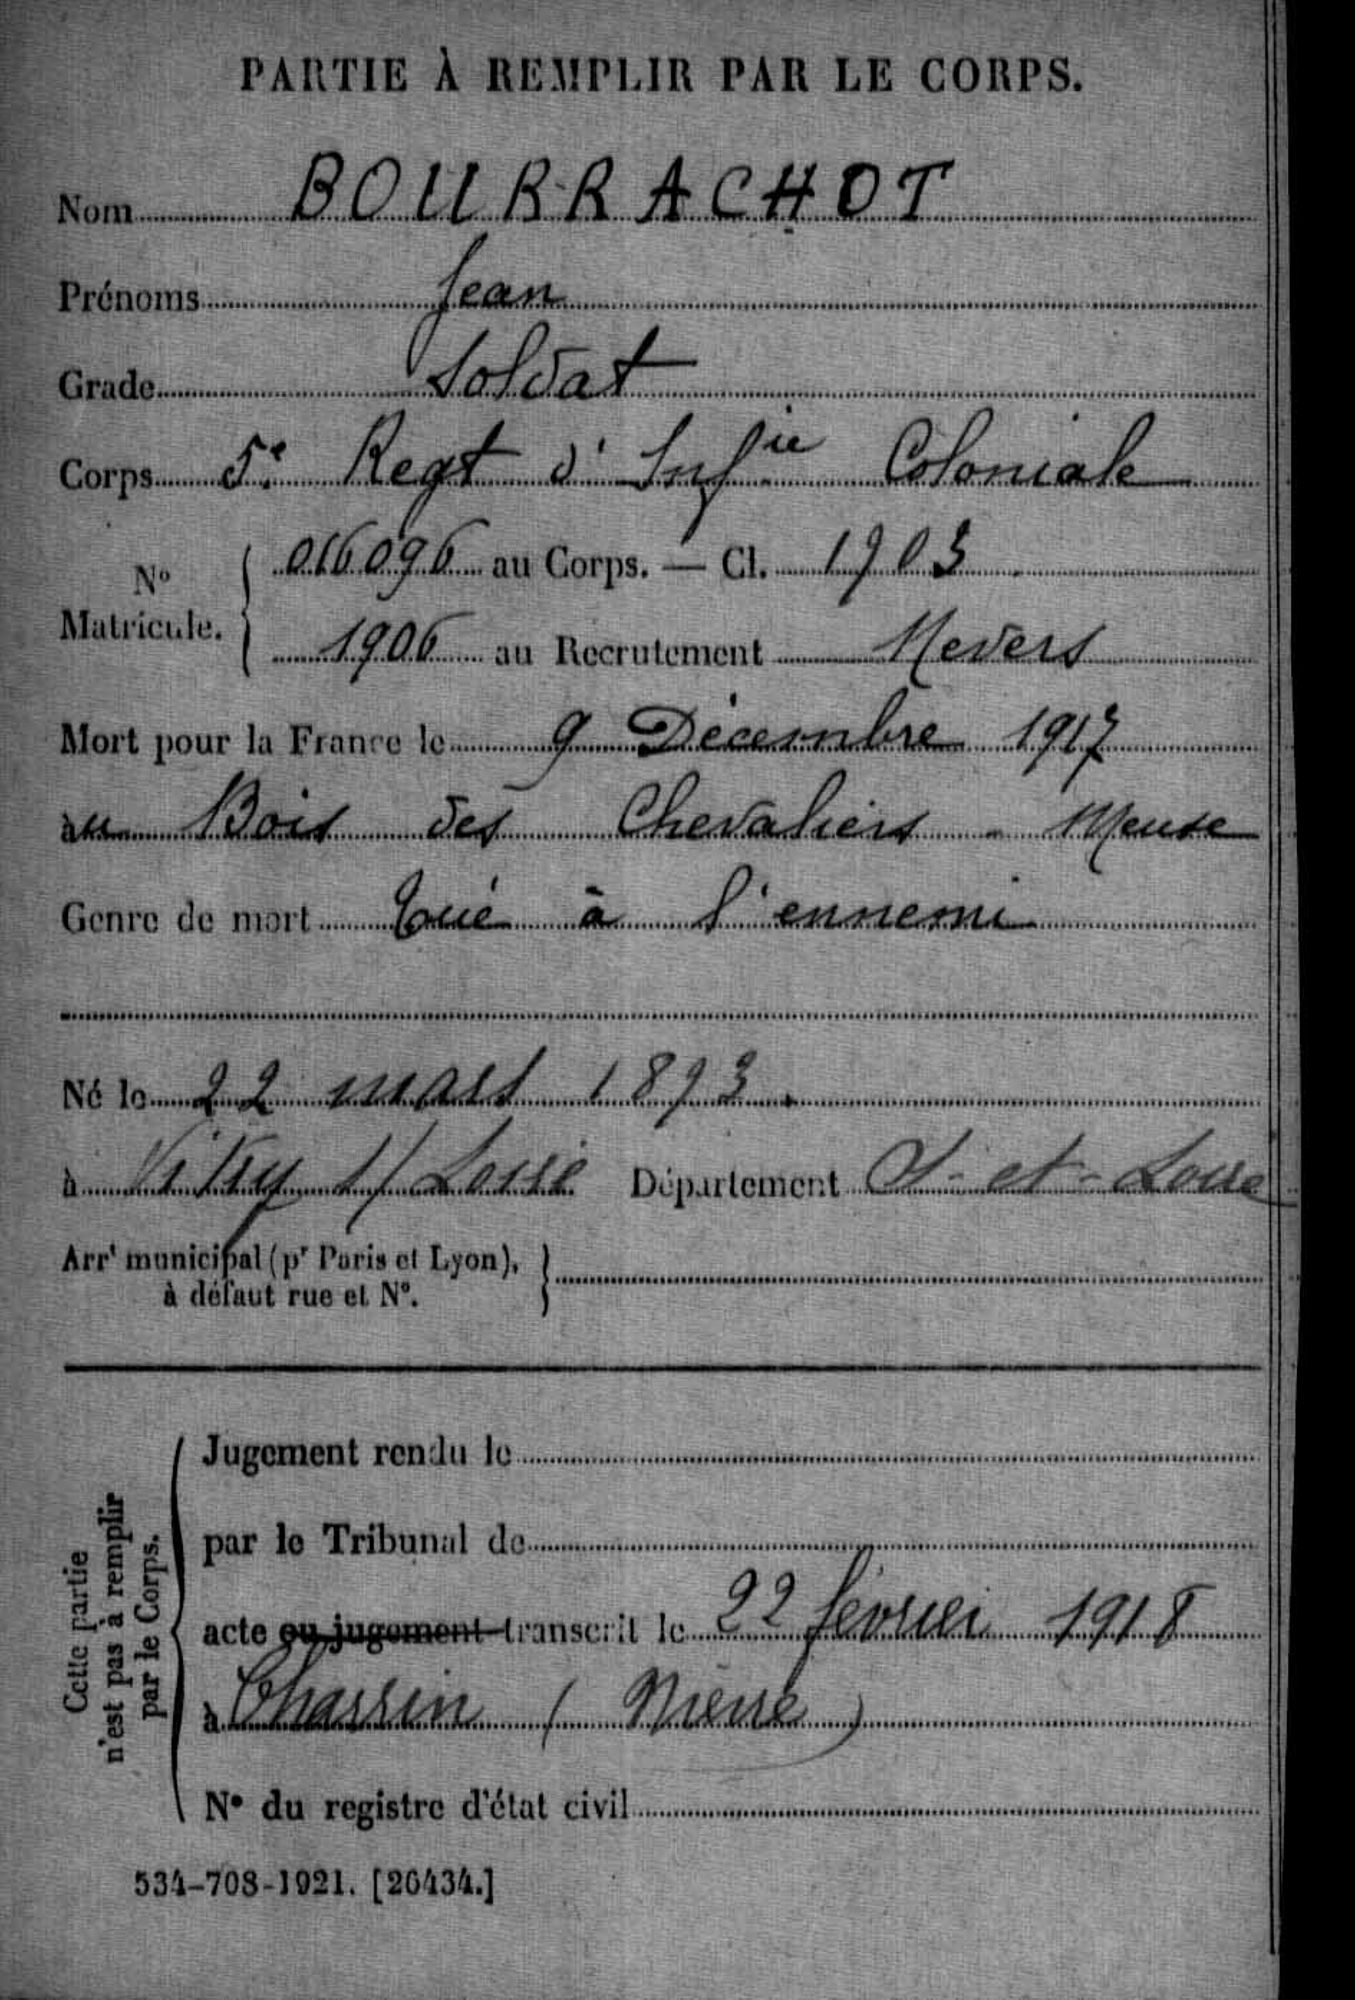 PARTIE À REMPLIR PAR LE CORPS.
Nom BOURRACHOT
Prénoms Jean
Grade Soldat
Corps 5e Regt d'Infie Coloniale
No Matricule. 016096 au Corps. — Cl. 1903
1906 au Recrutement Nevers
Mort pour la France le 9 Décembre 1917
au Bois des Chevaliers - Meuse
Genre de mort Tué à l'ennemi
Né le 22 mars 1893.
à Vitry s/ Loire Département S-et-Loire
Arrt municipal (pr Paris et Lyon),
à défaut rue et No.
Cette partie
n'est pas à remplir
par le Corps.
Jugement rendu le
par le Tribunal de
acte ou jugement transcrit le 22 février 1918
à (Nièvre)
No du registre d'état civil
534-708-1921. [26434.]